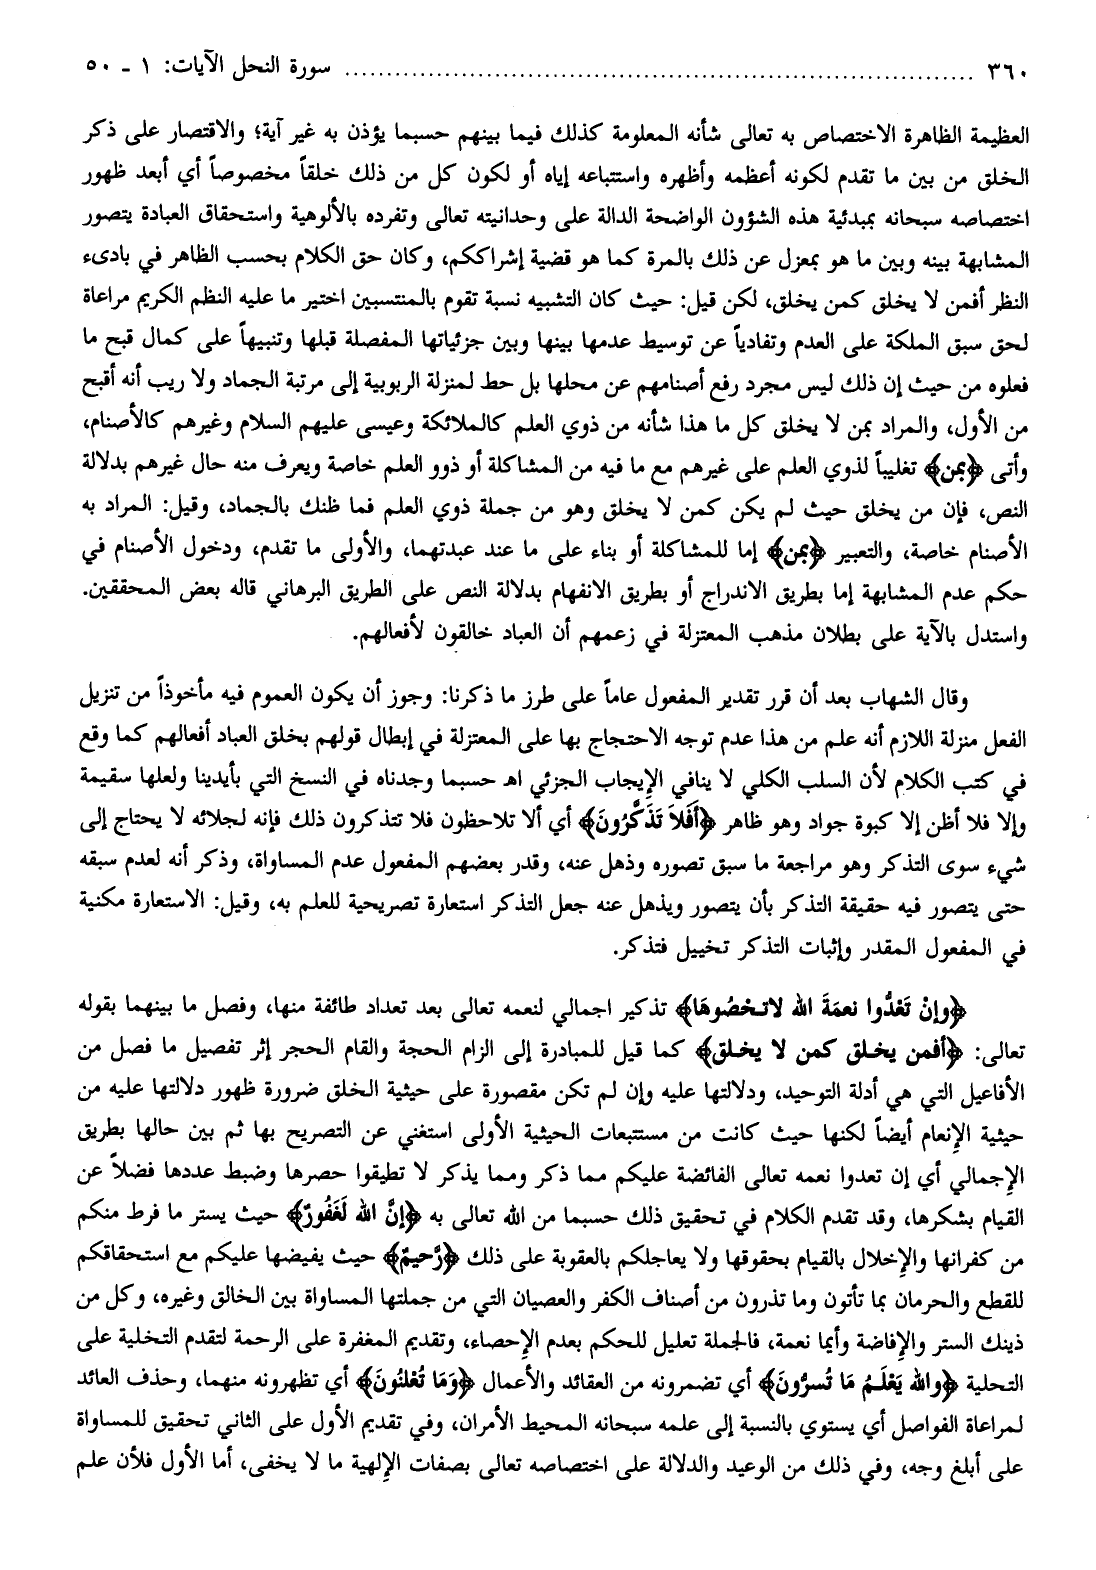 ٣٦٠ ............................................................ سورة النحل الآيات: ١ - ٥٠
العظيمة الظاهرة الاختصاص به تعالى شأنه المعلومة كذلك فيما بينهم حسبما يؤذن به غير آية؛ والاقتصار على ذكر
الخلق من بين ما تقدم لكونه أعظمه وأظهره واستتباعه إياه أو لكون كل من ذلك خلقاً مخصوصاً أي أبعد ظهور
اختصاصه سبحانه بمبدئية هذه الشؤون الواضحة الدالة على وحدانيته تعالى وتفرده بالألوهية واستحقاق العبادة يتصور
المشابهة بينه وبين ما هو بمعزل عن ذلك بالمرة كما هو قضية إشراككم، وكان حق الكلام بحسب الظاهر في بادىء
النظر أفمن لا يخلق كمن يخلق، لكن قيل: حيث كان التشبيه نسبة تقوم بالمنتسبين اختير ما عليه النظم الكريم مراعاة
لحق سبق الملكة على العدم وتفادياً عن توسيط عدمها بينها وبين جزئياتها المفصلة قبلها وتنبيهاً على كمال قبح ما
فعلوه من حيث إن ذلك ليس مجرد رفع أصنامهم عن محلها بل حط لمنزلة الربوبية إلى مرتبة الجماد ولا ريب أنه أقبح
من الأول، والمراد بمن لا يخلق كل ما هذا شأنه من ذوي العلم كالملائكة وعيسى عليهم السلام وغيرهم كالأصنام،
وأتى ﴿بمن﴾ تغليباً لذوي العلم على غيرهم مع ما فيه من المشاكلة أو ذوو العلم خاصة ويعرف منه حال غيرهم بدلالة
النص، فإن من يخلق حيث لم يكن كمن لا يخلق وهو من جملة ذوي العلم فما ظنك بالجماد، وقيل: المراد به
الأصنام خاصة، والتعبير ﴿بمن﴾ إما للمشاكلة أو بناء على ما عند عبدتهما، والأولى ما تقدم، ودخول الأصنام في
حكم عدم المشابهة إما بطريق الاندراج أو بطريق الانفهام بدلالة النص على الطريق البرهاني قاله بعض المحققين.
واستدل بالآية على بطلان مذهب المعتزلة في زعمهم أن العباد خالقون لأفعالهم.
وقال الشهاب بعد أن قرر تقدير المفعول عاماً على طرز ما ذكرنا: وجوز أن يكون العموم فيه مأخوذاً من تنزيل
الفعل منزلة اللازم أنه علم من هذا عدم توجه الاحتجاج بها على المعتزلة في إبطال قولهم بخلق العباد أفعالهم كما وقع
في كتب الكلام لأن السلب الكلي لا ينافي الإيجاب الجزئي اهـ حسبما وجدناه في النسخ التي بأيدينا ولعلها سقيمة
وإلا فلا أظن إلا كبوة جواد وهو ظاهر ﴿أَفَلاَ تَذَكَّرُونَ﴾ أي ألا تلاحظون فلا تتذكرون ذلك فإنه لجلائه لا يحتاج إلى
شيء سوى التذكر وهو مراجعة ما سبق تصوره وذهل عنه، وقدر بعضهم المفعول عدم المساواة، وذكر أنه لعدم سبقه
حتى يتصور فيه حقيقة التذكر بأن يتصور ويذهل عنه جعل التذكر استعارة تصريحية للعلم به، وقيل: الاستعارة مكنية
في المفعول المقدر وإثبات التذكر تخييل فتذكر.
﴿وإنْ تَعُدُّوا نعمَةَ الله لاتحْصُوهَا﴾ تذكير اجمالي لنعمه تعالى بعد تعداد طائفة منها، وفصل ما بينهما بقوله
تعالى: ﴿أفمن يخلق كمن لا يخلق﴾ كما قيل للمبادرة إلى الزام الحجة والقام الحجر إثر تفصيل ما فصل من
الأفاعيل التي هي أدلة التوحيد، ودلالتها عليه وإن لم تكن مقصورة على حيثية الخلق ضرورة ظهور دلالتها عليه من
حيثية الإنعام أيضاً لكنها حيث كانت من مستتبعات الحيثية الأولى استغني عن التصريح بها ثم بين حالها بطريق
الإجمالي أي إن تعدوا نعمه تعالى الفائضة عليكم مما ذكر ومما يذكر لا تطيقوا حصرها وضبط عددها فضلاً عن
القيام بشكرها، وقد تقدم الكلام في تحقيق ذلك حسبما من الله تعالى به ﴿إنَّ الله لَغَفُورٌ﴾ حيث يستر ما فرط منكم
من كفرانها والإخلال بالقيام بحقوقها ولا يعاجلكم بالعقوبة على ذلك ﴿رَّحيمٌ﴾ حيث يفيضها عليكم مع استحقاقكم
للقطع والحرمان بما تأتون وما تذرون من أصناف الكفر والعصيان التي من جملتها المساواة بين الخالق وغيره، وكل من
ذينك الستر والإفاضة وأيما نعمة، فالجملة تعليل للحكم بعدم الإحصاء، وتقديم المغفرة على الرحمة لتقدم التخلية على
التحلية ﴿والله يَعْلَمُ مَا تُسرُّونَ﴾ أي تضمرونه من العقائد والأعمال ﴿وَمَا تُعْلنُونَ﴾ أي تظهرونه منهما، وحذف العائد
لمراعاة الفواصل أي يستوي بالنسبة إلى علمه سبحانه المحيط الأمران، وفي تقديم الأول على الثاني تحقيق للمساواة
على أبلغ وجه، وفي ذلك من الوعيد والدلالة على اختصاصه تعالى بصفات الإلهية ما لا يخفى، أما الأول فلأن علم